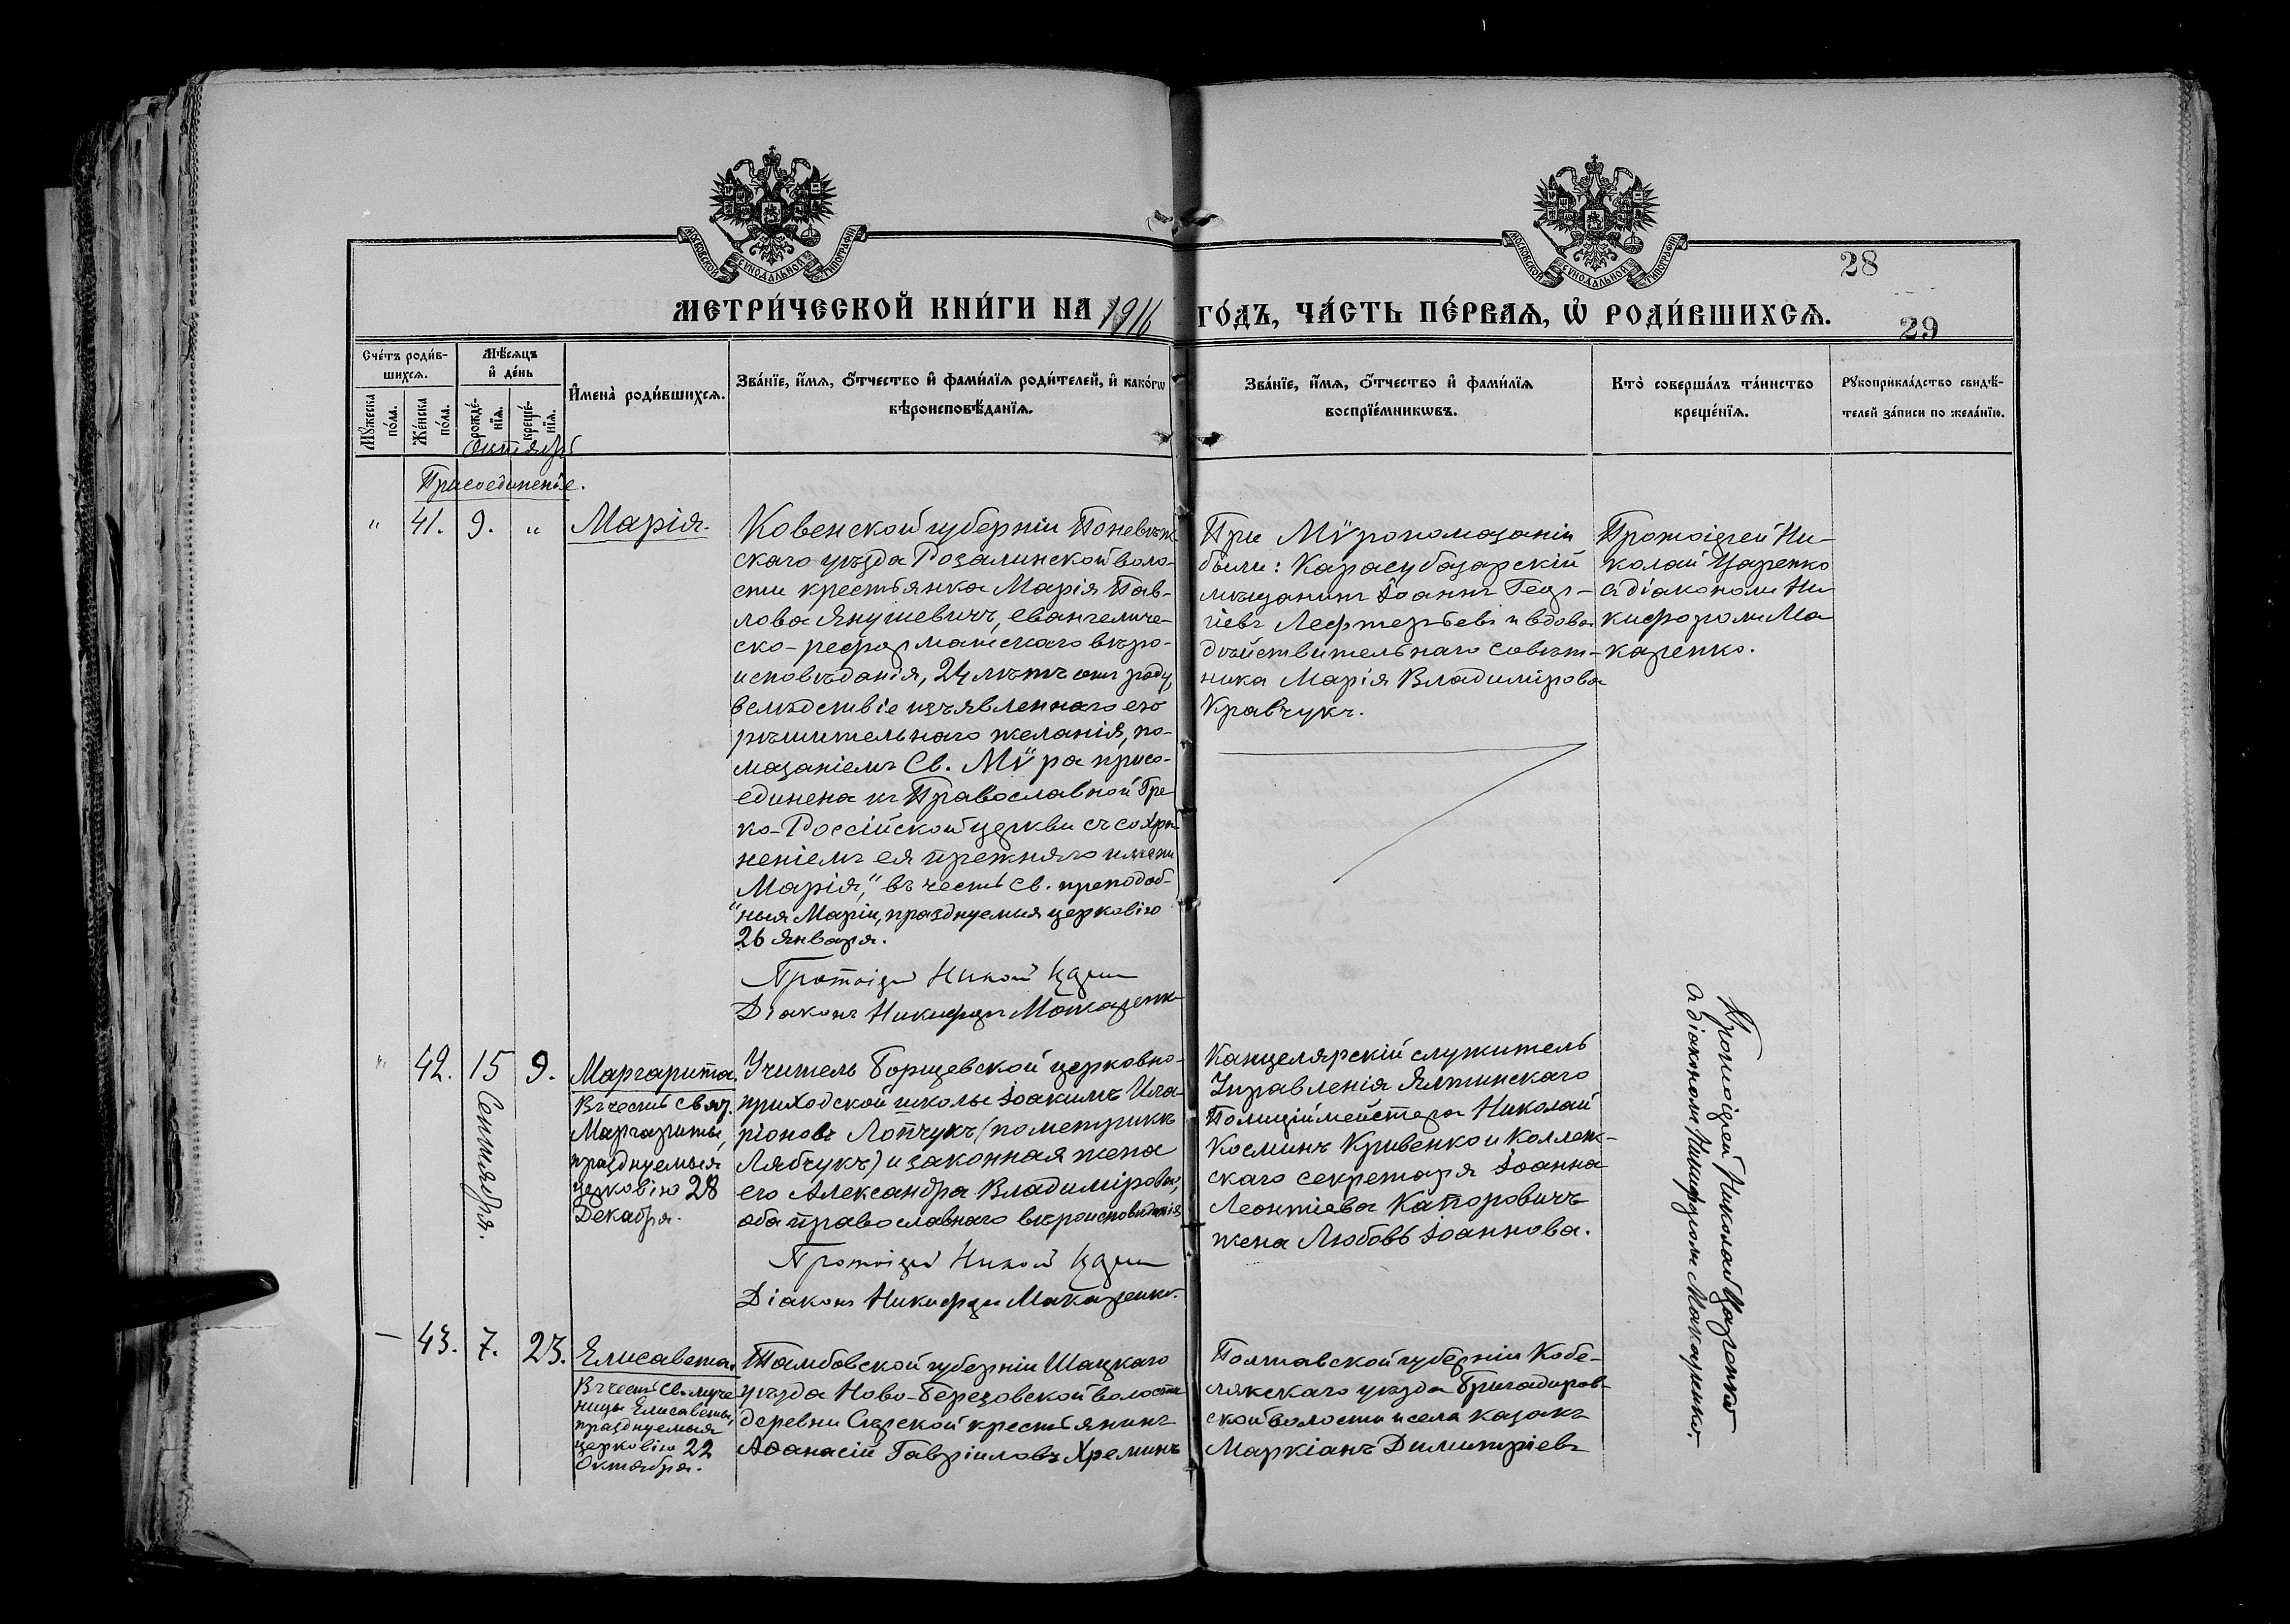 МОСКОВСКОЙ СѴНОДАЛЬНОЙ ТИПОГРАФІИ
МОСКОВСКОЙ СѴНОДАЛЬНОЙ ТИПОГРАФІИ
28
МЕТРИ́ЧЕСКОЙ КНИ́ГИ НА 1916 ГО́ДЪ, ЧА́СТЬ ПЕ́РВАѦ, Ѽ РОДИ́ВШИХСѦ.
29
Сче́тъ роди́в-
шихсѧ.
Мꙋ́жеска по́ла.
Же́нска по́ла.
Мѣ́сѧцъ
и҆ де́нь
рожде́-
нїѧ.
креще́-
нїѧ.
И҆мена̀ роди́вшихсѧ.
Зва́нїе, и҆́мѧ, ѻ҆́тчество и҆ фами́лїѧ роди́телей, и҆ како́гѡ
вѣроисповѣ́данїѧ.
Зва́нїе, и҆́мѧ, ѻ҆́тчество и҆ фами́лїѧ
воспрїе́мникѡвъ.
Кто̀ соверша́лъ та́инство
креще́нїѧ.
Рꙋкоприкла́дство свидѣ́-
телей за́писи по жела́нїю.
Октябрь
Присоединеніе.
" 41. 9. " Марія.
Ковенской губерніи Поневѣж-
скаго уѣзда Розалинской воло-
сти крестьянка Марія Пав-
лова Янушевичъ, евангеличе-
ско-реформатскаго вѣро-
исповѣданія, 24 лѣтъ отъ роду,
вслѣдствіе изъявленнаго ею
рѣшительнаго желанія, по-
мазаніемъ Св. Мѵра присо-
единена къ Православной Гре
ко-Россійской церкви съ сохра
неніемъ ея прежняго имени
Марія," въ честь св. преподоб-
"ныя Маріи, празднуемыя церковію
26 января.
Діаконъ Никифоръ Макаренко
При Мѵропомазаніи
были: Карасубазарскій
мѣщанинъ Іоаннъ Геор-
гіевъ Лефтерьевъ и вдова
дѣйствительнаго совѣт-
ника Марія Владимірова
Кравчукъ.
Протоіерей Ни-
колай Царенко
съ діакономъ Ни-
кифоромъ Ма-
каренко.
" 42. 15 Сентября. 9. Маргарита.
Въ честь св. муч.
Маргариты,
празднуемыя
церковію 28
Декабря.
Учитель Борщевской церковно-
приходской школы Іоакимъ Ила-
ріоновъ Лопчукъ (по метрикѣ
Лябчукъ) и законная жена
его Александра Владимірова,
оба православнаго вѣроисповѣданія
Діаконъ Никифоръ Макаренко.
Канцелярскій служитель
Управленія Ялтинскаго
Полиціймейстера Николай
Космынъ Кривенко и Коллеж-
скаго секретаря Іоанна
Леонтіева Капоровичъ
жена Любовь Іоаннова.
Протоіерей Николай Царенко
съ діакономъ Никифоромъ Макаренко.
— 43. 7. 23. Елисавета.
Въ честь св. муче
ницы Елисаветы,
празднуемыя
церковію 22
Октября.
Тамбовской губерніи Шацкаго
уѣзда Ново-Березовской волости
деревни Сѣрской крестьянинъ
Аѳанасій Гавріиловъ Хреминъ
Полтавской губерніи Кобе-
лякскаго уѣзда Бригадиров-
ской волости и села казакъ
Маркіанъ Димитріевъ